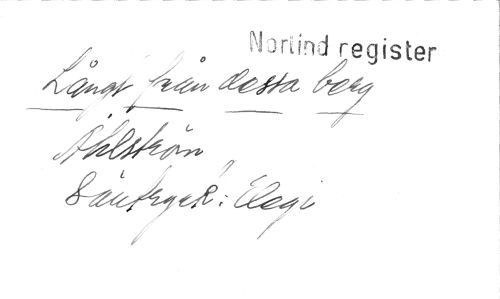 Norlind register
Långt från dessa berg
Åhlström
Särtryck: Elegi